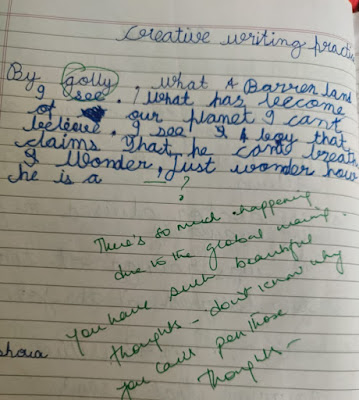 Creative writing practi
By golly, what A Barren land
I see. What has become
of our planet I can't
believe. I see A boy that
claims that he cant breath
I Wonder, Just wonder how
he is a __ ?
?
There's so much happening
due to the global warming.
You have such beautiful
thoughts - don't know why
you can't pen those
thoughts -